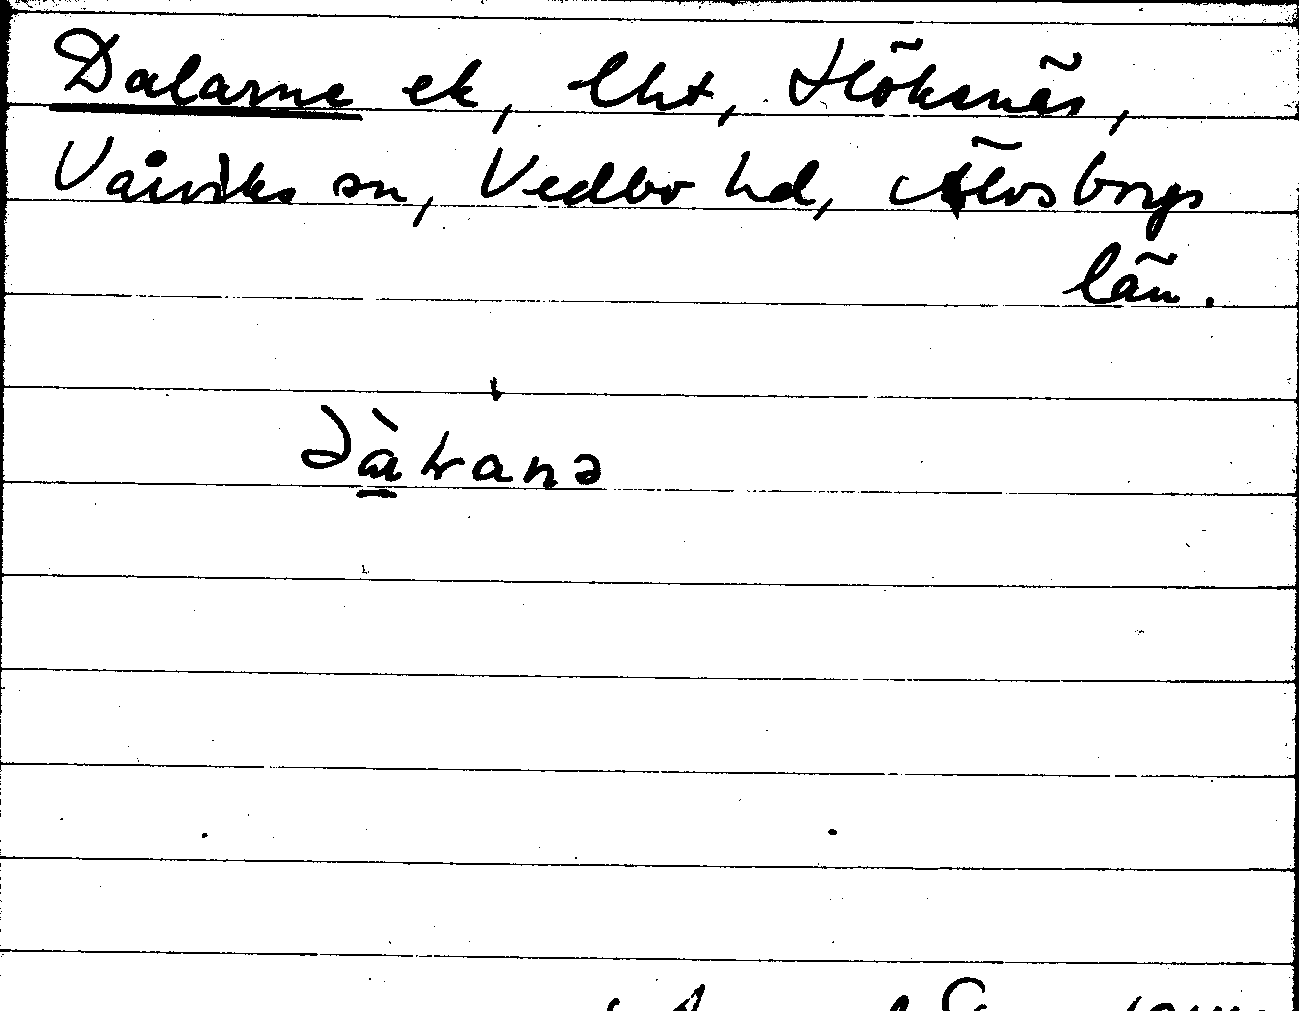 Dalarne ek, lht, Höksnäs,
Vårviks sn, Vedbo hd, Älvsborgs
län.